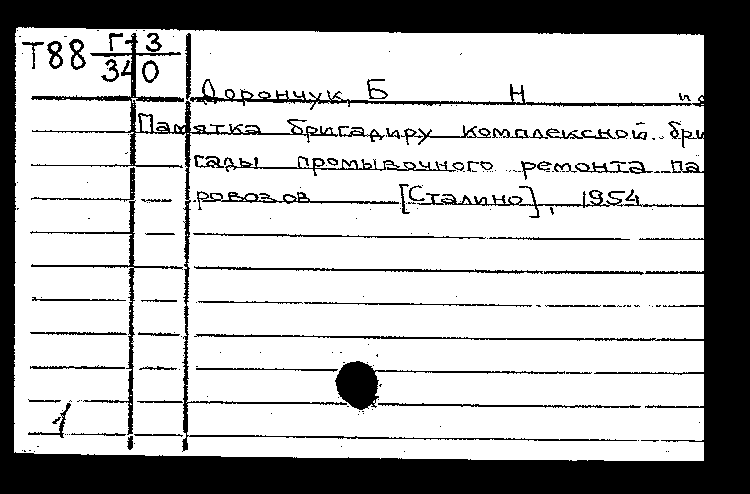 Т88 Г-3
340
Дорончук, Б Н
Памятка бригадиру комплексной бри
гады промывочного ремонта па
ровозов [Сталино], 1954
1